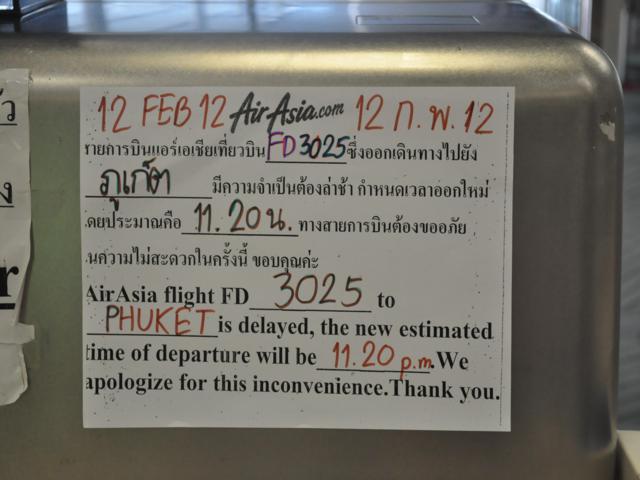 12 FEB 12 AirAsia.com 12 ก.พ. 12
รายการบินแอร์เอเชียเที่ยวบิน FD 3025 ซึ่งออกเดินทางไปยัง
ภูเก็ต มีความจำเป็นต้องล่าช้า กำหนดเวลาออกใหม่
โดยประมาณคือ 11.20 น. ทางสายการบินต้องขออภัย
นความไม่สะดวกในครั้งนี้ ขอบคุณค่ะ
AirAsia flight FD 3025 to
PHUKET is delayed, the new estimated
time of departure will be 11.20 p.m. We
apologize for this inconvenience.Thank you.
ัว
ง
r